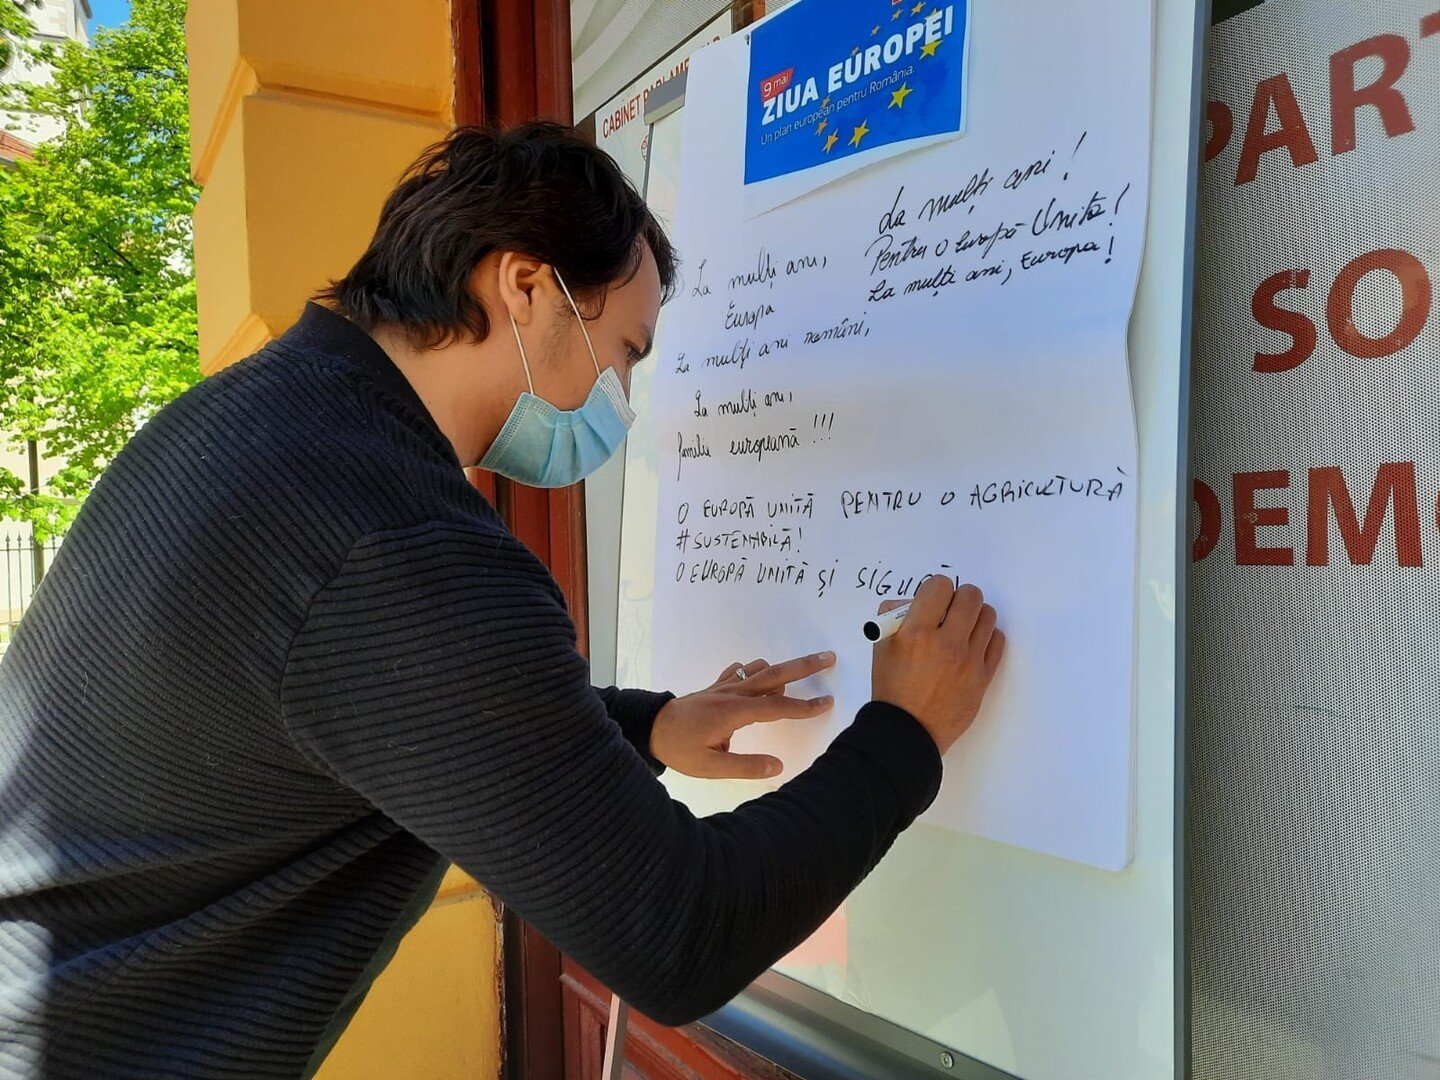 CABINET
9 mai
ZIUA EUROPEI
Un plan european pentru România.
La mulți ani!
Pentru o Europă Unită!
La mulți ani, Europa!
La mulți ani,
Europa
La mulți ani români,
La mulți ani,
familie europeană !!!
O EUROPĂ UNITĂ PENTRU O AGRICULTURĂ
#SUSTENABILĂ!
O EUROPĂ UNITĂ ȘI SIGURĂ
PART
SO
DEM